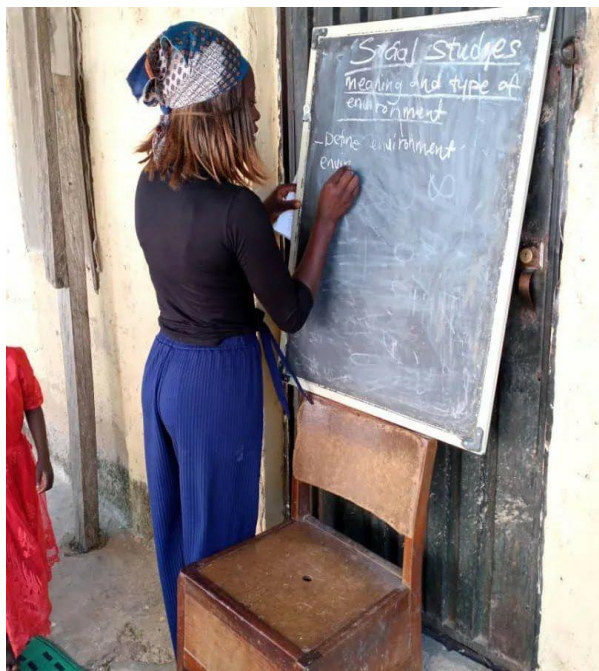 Social Studies
meaning and type of
environment
- Define environment
envir